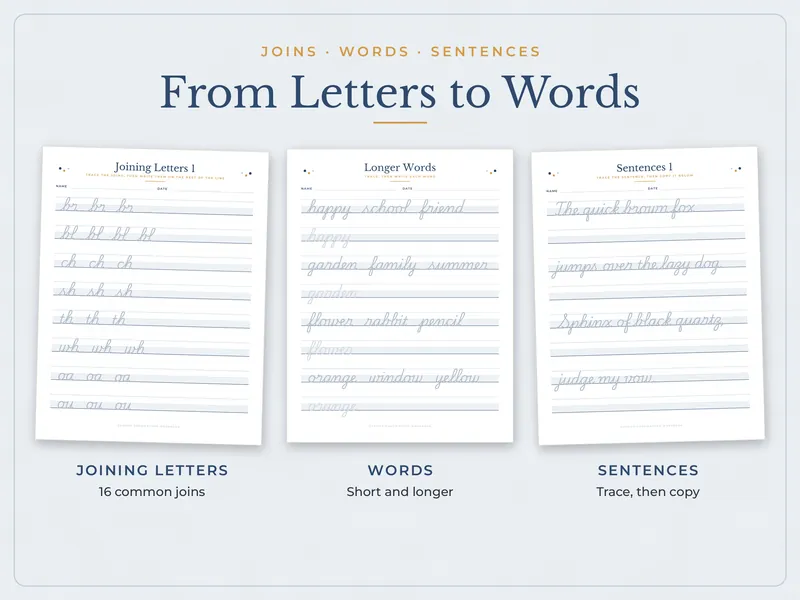 JOINS · WORDS · SENTENCES
From Letters to Words
Joining Letters 1
TRACE THE JOINS, THEN WRITE THEM ON THE REST OF THE LINE
NAME DATE
br br br
bl bl bl bl
ch ch ch
sh sh sh
th th th
wh wh wh
oa oa oa
ou ou ou
Longer Words
TRACE, THEN WRITE EACH WORD
NAME DATE
happy school friend
happy
garden family summer
garden
flower rabbit pencil
flower
orange window yellow
orange
Sentences 1
TRACE THE SENTENCE, THEN COPY IT BELOW
NAME DATE
The quick brown fox
jumps over the lazy dog.
Sphinx of black quartz,
judge my vow.
JOINING LETTERS
16 common joins
WORDS
Short and longer
SENTENCES
Trace, then copy